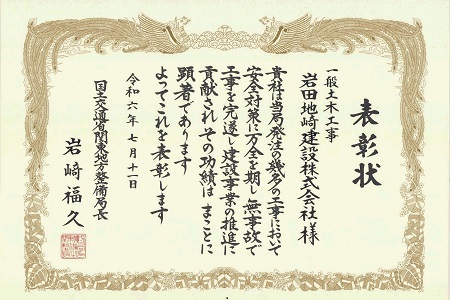 表彰状
一般土木工事
岩田地崎建設株式会社様
貴社は当局発注の幾多の工事において
安全対策に万全を期し無事故で
工事を完遂し建設事業の推進に
貢献されその功績はまことに
顕著であります
よってこれを表彰します
令和六年七月十一日
国土交通省関東地方整備局長
岩﨑福久